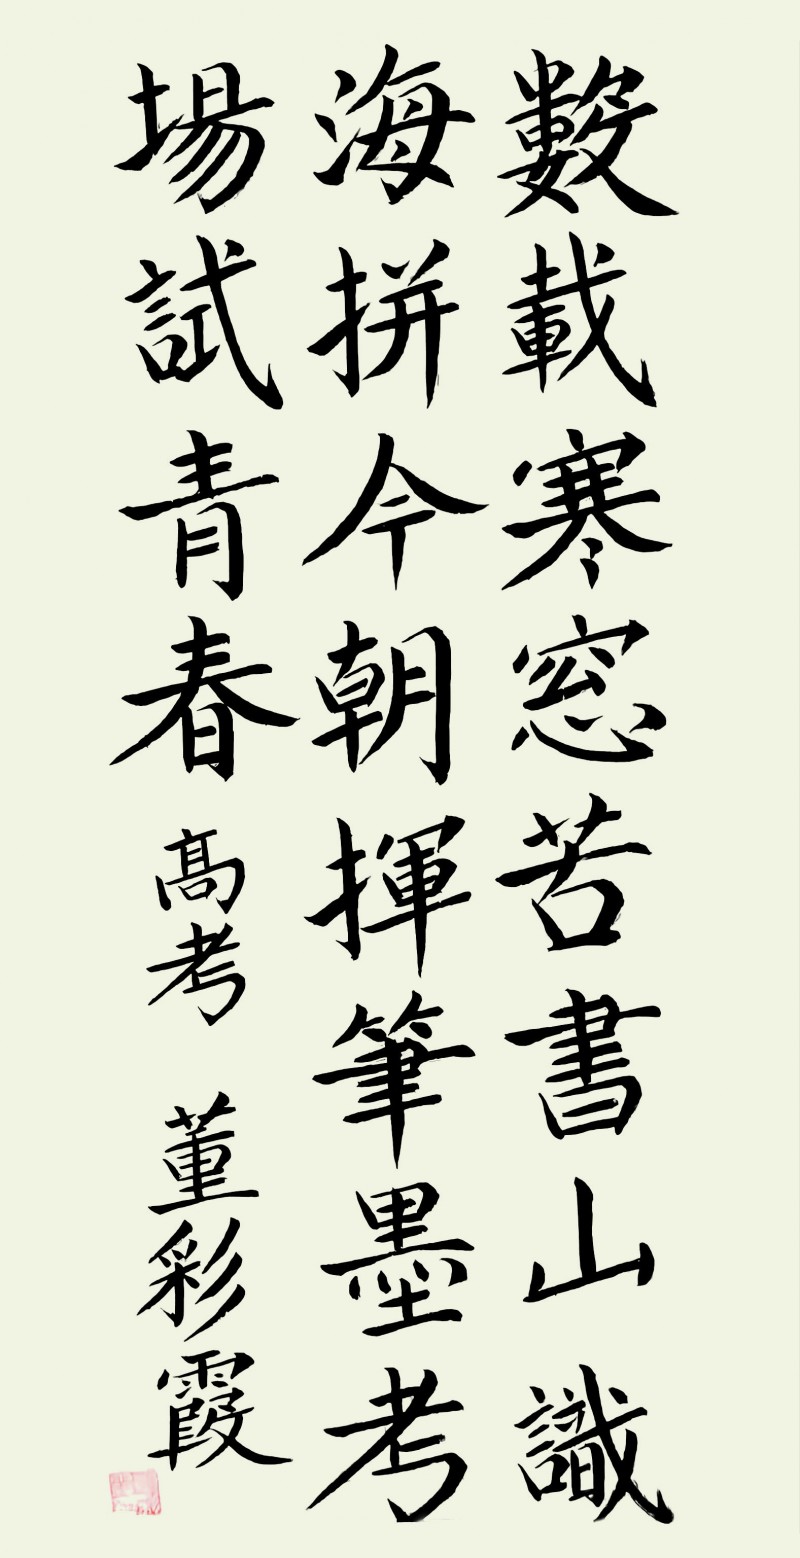 數載寒窓苦書山識
海拼今朝揮筆墨考
場試青春高考 董彩霞